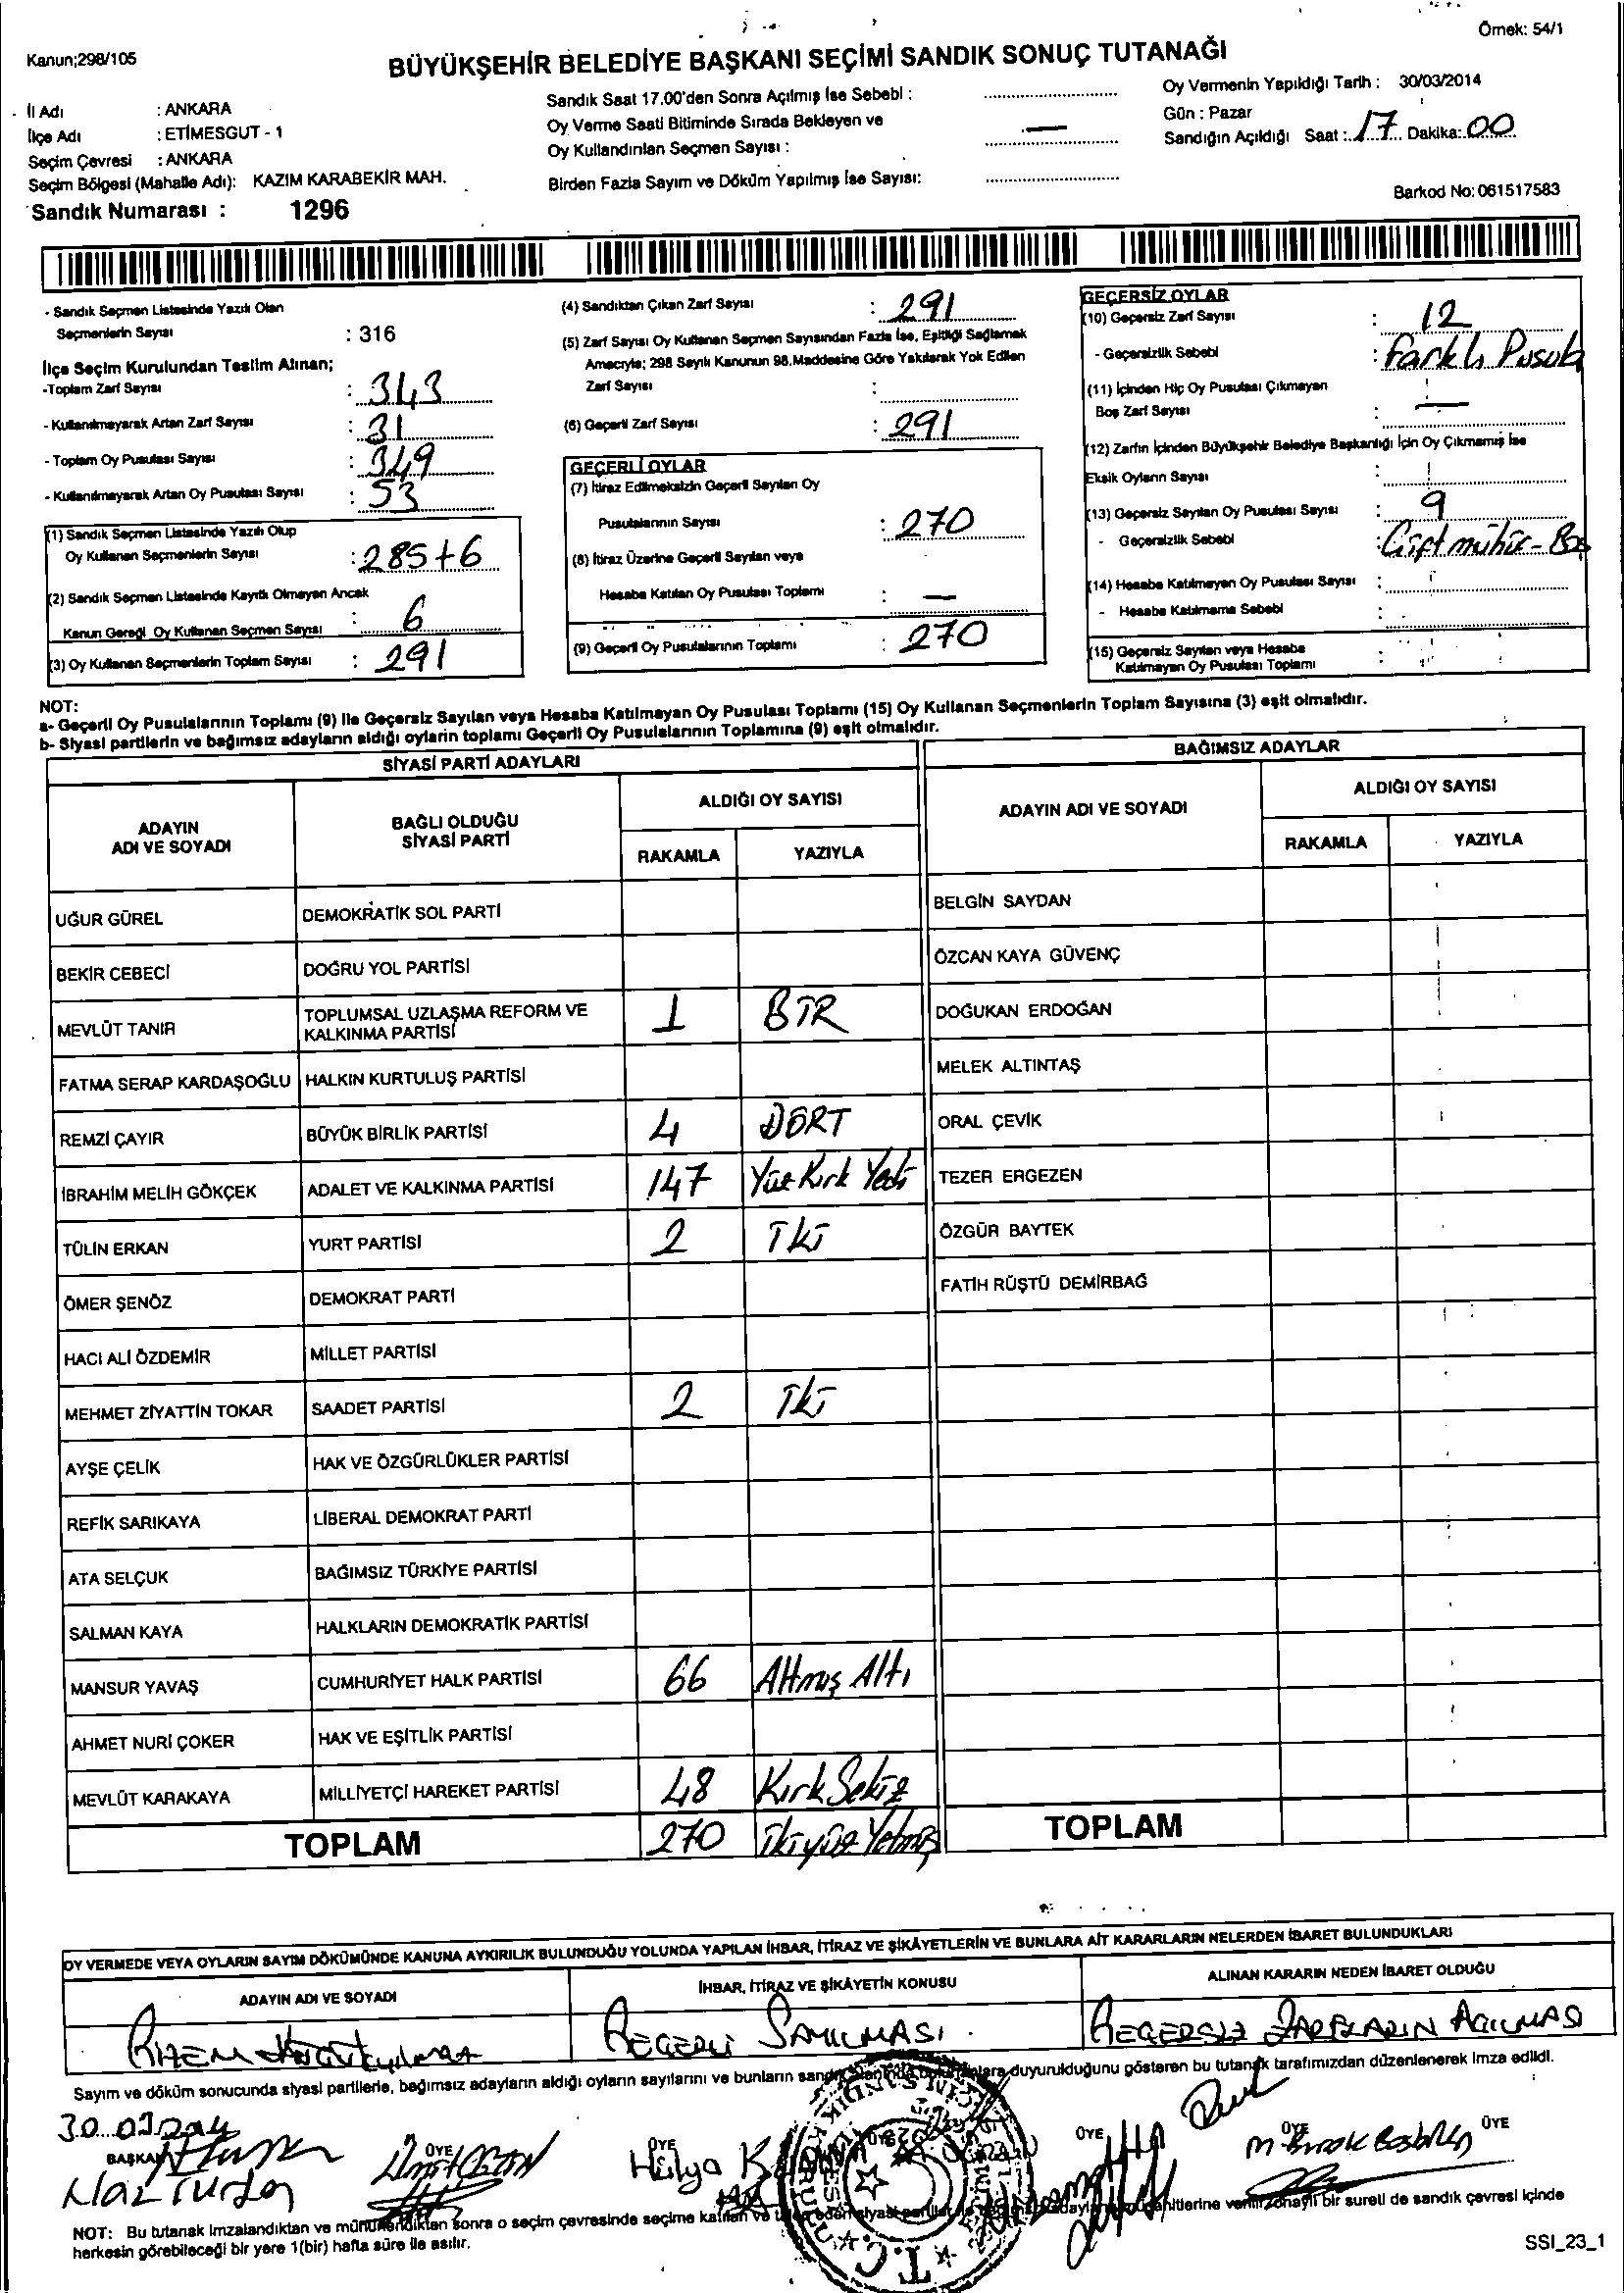 Örnek: 54/1
Kanun;298/105
BÜYÜKŞEHİR BELEDİYE BAŞKANI SEÇİMİ SANDIK SONUÇ TUTANAĞI
İl Adı : ANKARA
İlçe Adı : ETİMESGUT - 1
Seçim Çevresi : ANKARA
Seçim Bölgesi (Mahalle Adı): KAZIM KARABEKİR MAH.
Sandık Numarası : 1296
Sandık Saat 17.00'den Sonra Açılmış İse Sebebi :
Oy Verme Saati Bitiminde Sırada Bekleyen ve
Oy Kullandırılan Seçmen Sayısı : —
Birden Fazla Sayım ve Döküm Yapılmış İse Sayısı:
Oy Vermenin Yapıldığı Tarih : 30/03/2014
Gün : Pazar
Sandığın Açıldığı Saat : 17 Dakika: 00
Barkod No: 061517583
- Sandık Seçmen Listesinde Yazılı Olan
Seçmenlerin Sayısı : 316
İlçe Seçim Kurulundan Teslim Alınan;
-Toplam Zarf Sayısı : 343
- Kullanılmayarak Artan Zarf Sayısı : 31
- Toplam Oy Pusulası Sayısı : 349
- Kullanılmayarak Artan Oy Pusulası Sayısı : 53
(1) Sandık Seçmen Listesinde Yazılı Olup
Oy Kullanan Seçmenlerin Sayısı : 285+6
(2) Sandık Seçmen Listesinde Kayıtlı Olmayan Ancak
Kanun Gereği Oy Kullanan Seçmen Sayısı : 6
(3) Oy Kullanan Seçmenlerin Toplam Sayısı : 291
(4) Sandıktan Çıkan Zarf Sayısı : 291
(5) Zarf Sayısı Oy Kullanan Seçmen Sayısından Fazla İse, Eşitliği Sağlamak
Amacıyla; 298 Sayılı Kanunun 98.Maddesine Göre Yakılarak Yok Edilen
Zarf Sayısı :
(6) Geçerli Zarf Sayısı : 291
GEÇERLİ OYLAR
(7) İtiraz Edilmeksizin Geçerli Sayılan Oy
Pusulalarının Sayısı : 270
(8) İtiraz Üzerine Geçerli Sayılan veya
Hesaba Katılan Oy Pusulası Toplamı : —
(9) Geçerli Oy Pusulalarının Toplamı : 270
GEÇERSİZ OYLAR
(10) Geçersiz Zarf Sayısı : 12
- Geçersizlik Sebebi : Farklı Pusula
(11) İçinden Hiç Oy Pusulası Çıkmayan
Boş Zarf Sayısı : —
(12) Zarfın İçinden Büyükşehir Belediye Başkanlığı İçin Oy Çıkmamış İse
Eksik Oyların Sayısı :
(13) Geçersiz Sayılan Oy Pusulası Sayısı : 9
- Geçersizlik Sebebi : Çift mühür - Boş
(14) Hesaba Katılmayan Oy Pusulası Sayısı :
- Hesaba Katılmama Sebebi :
(15) Geçersiz Sayılan veya Hesaba
Katılmayan Oy Pusulası Toplamı :
NOT:
a- Geçerli Oy Pusulalarının Toplamı (9) ile Geçersiz Sayılan veya Hesaba Katılmayan Oy Pusulası Toplamı (15) Oy Kullanan Seçmenlerin Toplam Sayısına (3) eşit olmalıdır.
b- Siyasi partilerin ve bağımsız adayların aldığı oyların toplamı Geçerli Oy Pusulalarının Toplamına (9) eşit olmalıdır.
SİYASİ PARTİ ADAYLARI
ADAYIN ADI VE SOYADI
BAĞLI OLDUĞU SİYASİ PARTİ
ALDIĞI OY SAYISI
RAKAMLA YAZIYLA
UĞUR GÜREL DEMOKRATİK SOL PARTİ
BEKİR CEBECİ DOĞRU YOL PARTİSİ
MEVLÜT TANIR TOPLUMSAL UZLAŞMA REFORM VE KALKINMA PARTİSİ 1 BİR
FATMA SERAP KARDAŞOĞLU HALKIN KURTULUŞ PARTİSİ
REMZİ ÇAYIR BÜYÜK BİRLİK PARTİSİ 4 DÖRT
İBRAHİM MELİH GÖKÇEK ADALET VE KALKINMA PARTİSİ 147 Yüz Kırk Yedi
TÜLİN ERKAN YURT PARTİSİ 2 İki
ÖMER ŞENÖZ DEMOKRAT PARTİ
HACI ALİ ÖZDEMİR MİLLET PARTİSİ
MEHMET ZİYATTİN TOKAR SAADET PARTİSİ 2 İki
AYŞE ÇELİK HAK VE ÖZGÜRLÜKLER PARTİSİ
REFİK SARIKAYA LİBERAL DEMOKRAT PARTİ
ATA SELÇUK BAĞIMSIZ TÜRKİYE PARTİSİ
SALMAN KAYA HALKLARIN DEMOKRATİK PARTİSİ
MANSUR YAVAŞ CUMHURİYET HALK PARTİSİ 66 Altmış Altı
AHMET NURİ ÇOKER HAK VE EŞİTLİK PARTİSİ
MEVLÜT KARAKAYA MİLLİYETÇİ HAREKET PARTİSİ 48 Kırk Sekiz
TOPLAM 270 İkiyüz Yetmiş
BAĞIMSIZ ADAYLAR
ADAYIN ADI VE SOYADI
ALDIĞI OY SAYISI
RAKAMLA YAZIYLA
BELGİN SAYDAN
ÖZCAN KAYA GÜVENÇ
DOĞUKAN ERDOĞAN
MELEK ALTINTAŞ
ORAL ÇEVİK
TEZER ERGEZEN
ÖZGÜR BAYTEK
FATİH RÜŞTÜ DEMİRBAĞ
TOPLAM
OY VERMEDE VEYA OYLARIN SAYIM DÖKÜMÜNDE KANUNA AYKIRILIK BULUNDUĞU YOLUNDA YAPILAN İHBAR, İTİRAZ VE ŞİKÂYETLERİN VE BUNLARA AİT KARARLARIN NELERDEN İBARET BULUNDUKLARI
ADAYIN ADI VE SOYADI
İHBAR, İTİRAZ VE ŞİKÂYETİN KONUSU
ALINAN KARARIN NEDEN İBARET OLDUĞU
GEÇERLİ SAYILMASI
GEÇERSİZ ZARFLARIN AÇILMASI
Sayım ve döküm sonucunda siyasi partilerle, bağımsız adayların aldığı oyların sayılarını ve bunların duyurulduğunu gösteren bu tutanak tarafımızdan düzenlenerek imza edildi.
30.03.2014
BAŞKAN ÜYE ÜYE ÜYE ÜYE ÜYE
Naz Turan
Hülya
T.C.
NOT: Bu tutanak imzalandıktan ve mühürlendikten sonra o seçim çevresinde seçime katılan ve verilir onaylı bir sureti de sandık çevresi içinde
herkesin görebileceği bir yere 1(bir) hafta süre ile asılır.
SSI_23_1